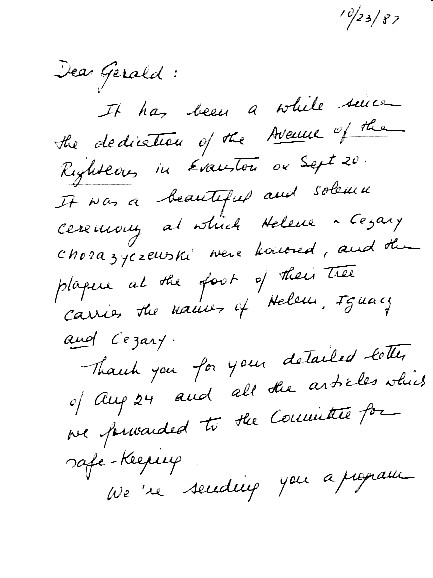 10/23/87
Dear Gerald:
It has been a while since
the dedication of the Avenue of the
Righteous in Evanston on Sept 20.
It was a beautiful and solemn
ceremony at which Helene & Cezary
Chorazyczewski were honored, and the
plaque at the foot of their Tree
carries the names of Helene, Ignacy
and Cezary.
Thank you for your detailed letter
of Aug 24 and all the articles which
we forwarded to the Committee for
safe-keeping
We're sending you a program